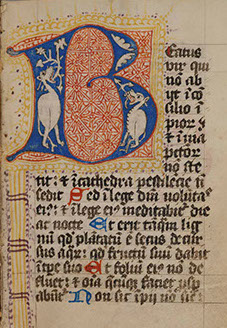 Beatus
vir qui
nō ab
yt ī cō
silio ī
pior̄ ⁊
⁊ ī uia
pctor̄
nō ste
tit: ⁊ ī cathedra pestilēcie n̄
sedit Sed ī lege dm̄ volūta
ei⁹: ⁊ ī lege ei⁹ meditabit᷑ die
ac nocte Et erit tāqm̄ lig
nū qd̄ plātatū ē secus de cur
sus aqr̄: qd̄ fructū suū dabit
ī tp̄e suo Et foliū ei⁹ nō de
fluet: ⁊ oīa quecūq̄ faciet p̄sp
abūt᷑ Non sit īpii nō sic